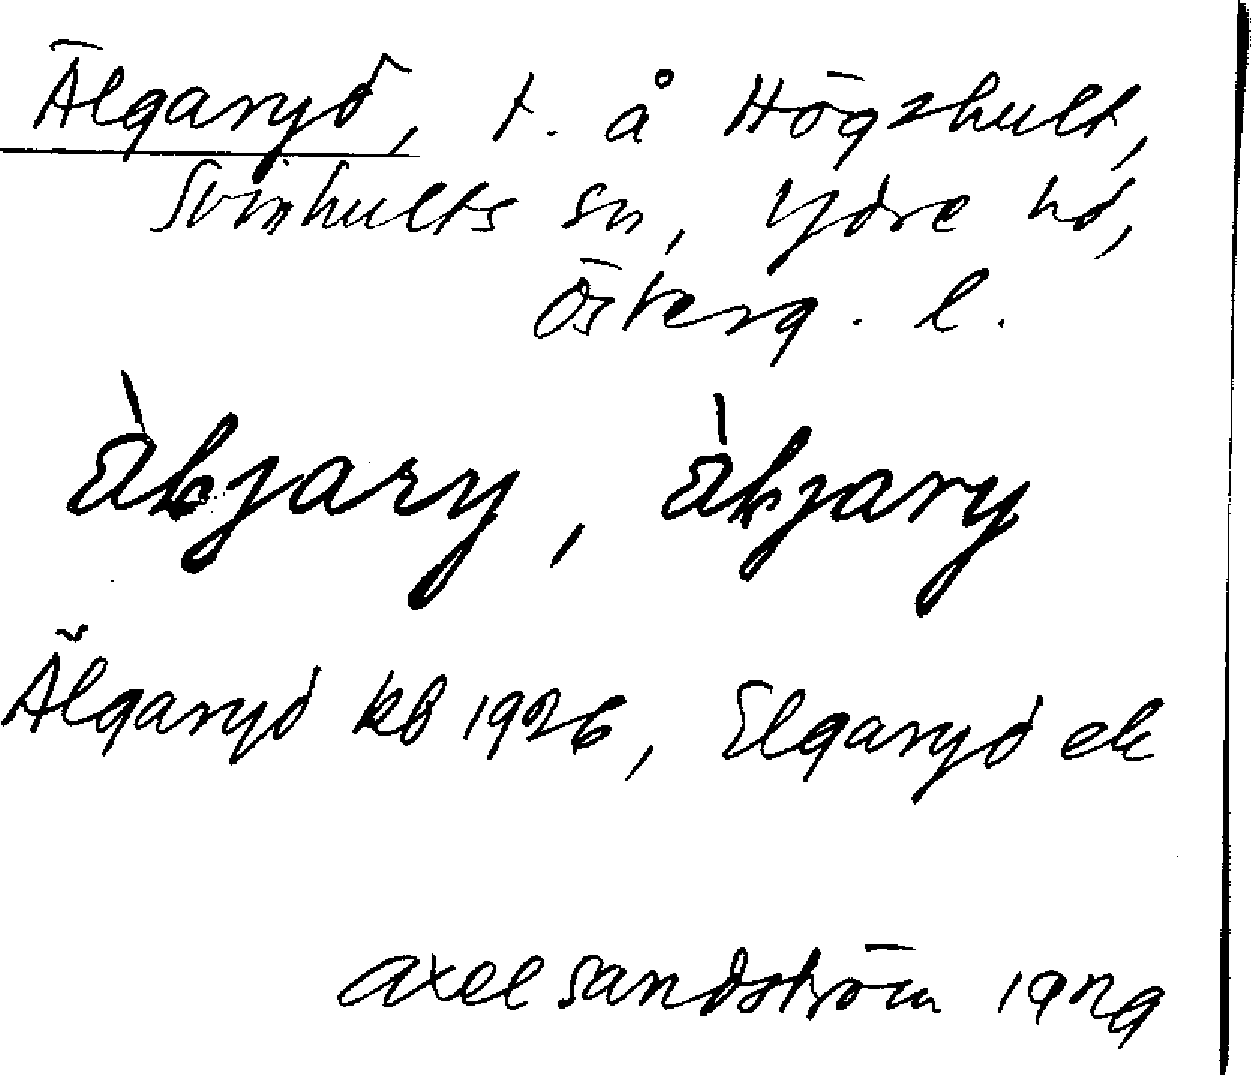 Älgaryd, t. å Högshult,
Svinhults sn, Ydre hd,
Österg. l.
Älgaryd kb 1926, Elgaryd ek
Axel Sandström 1929